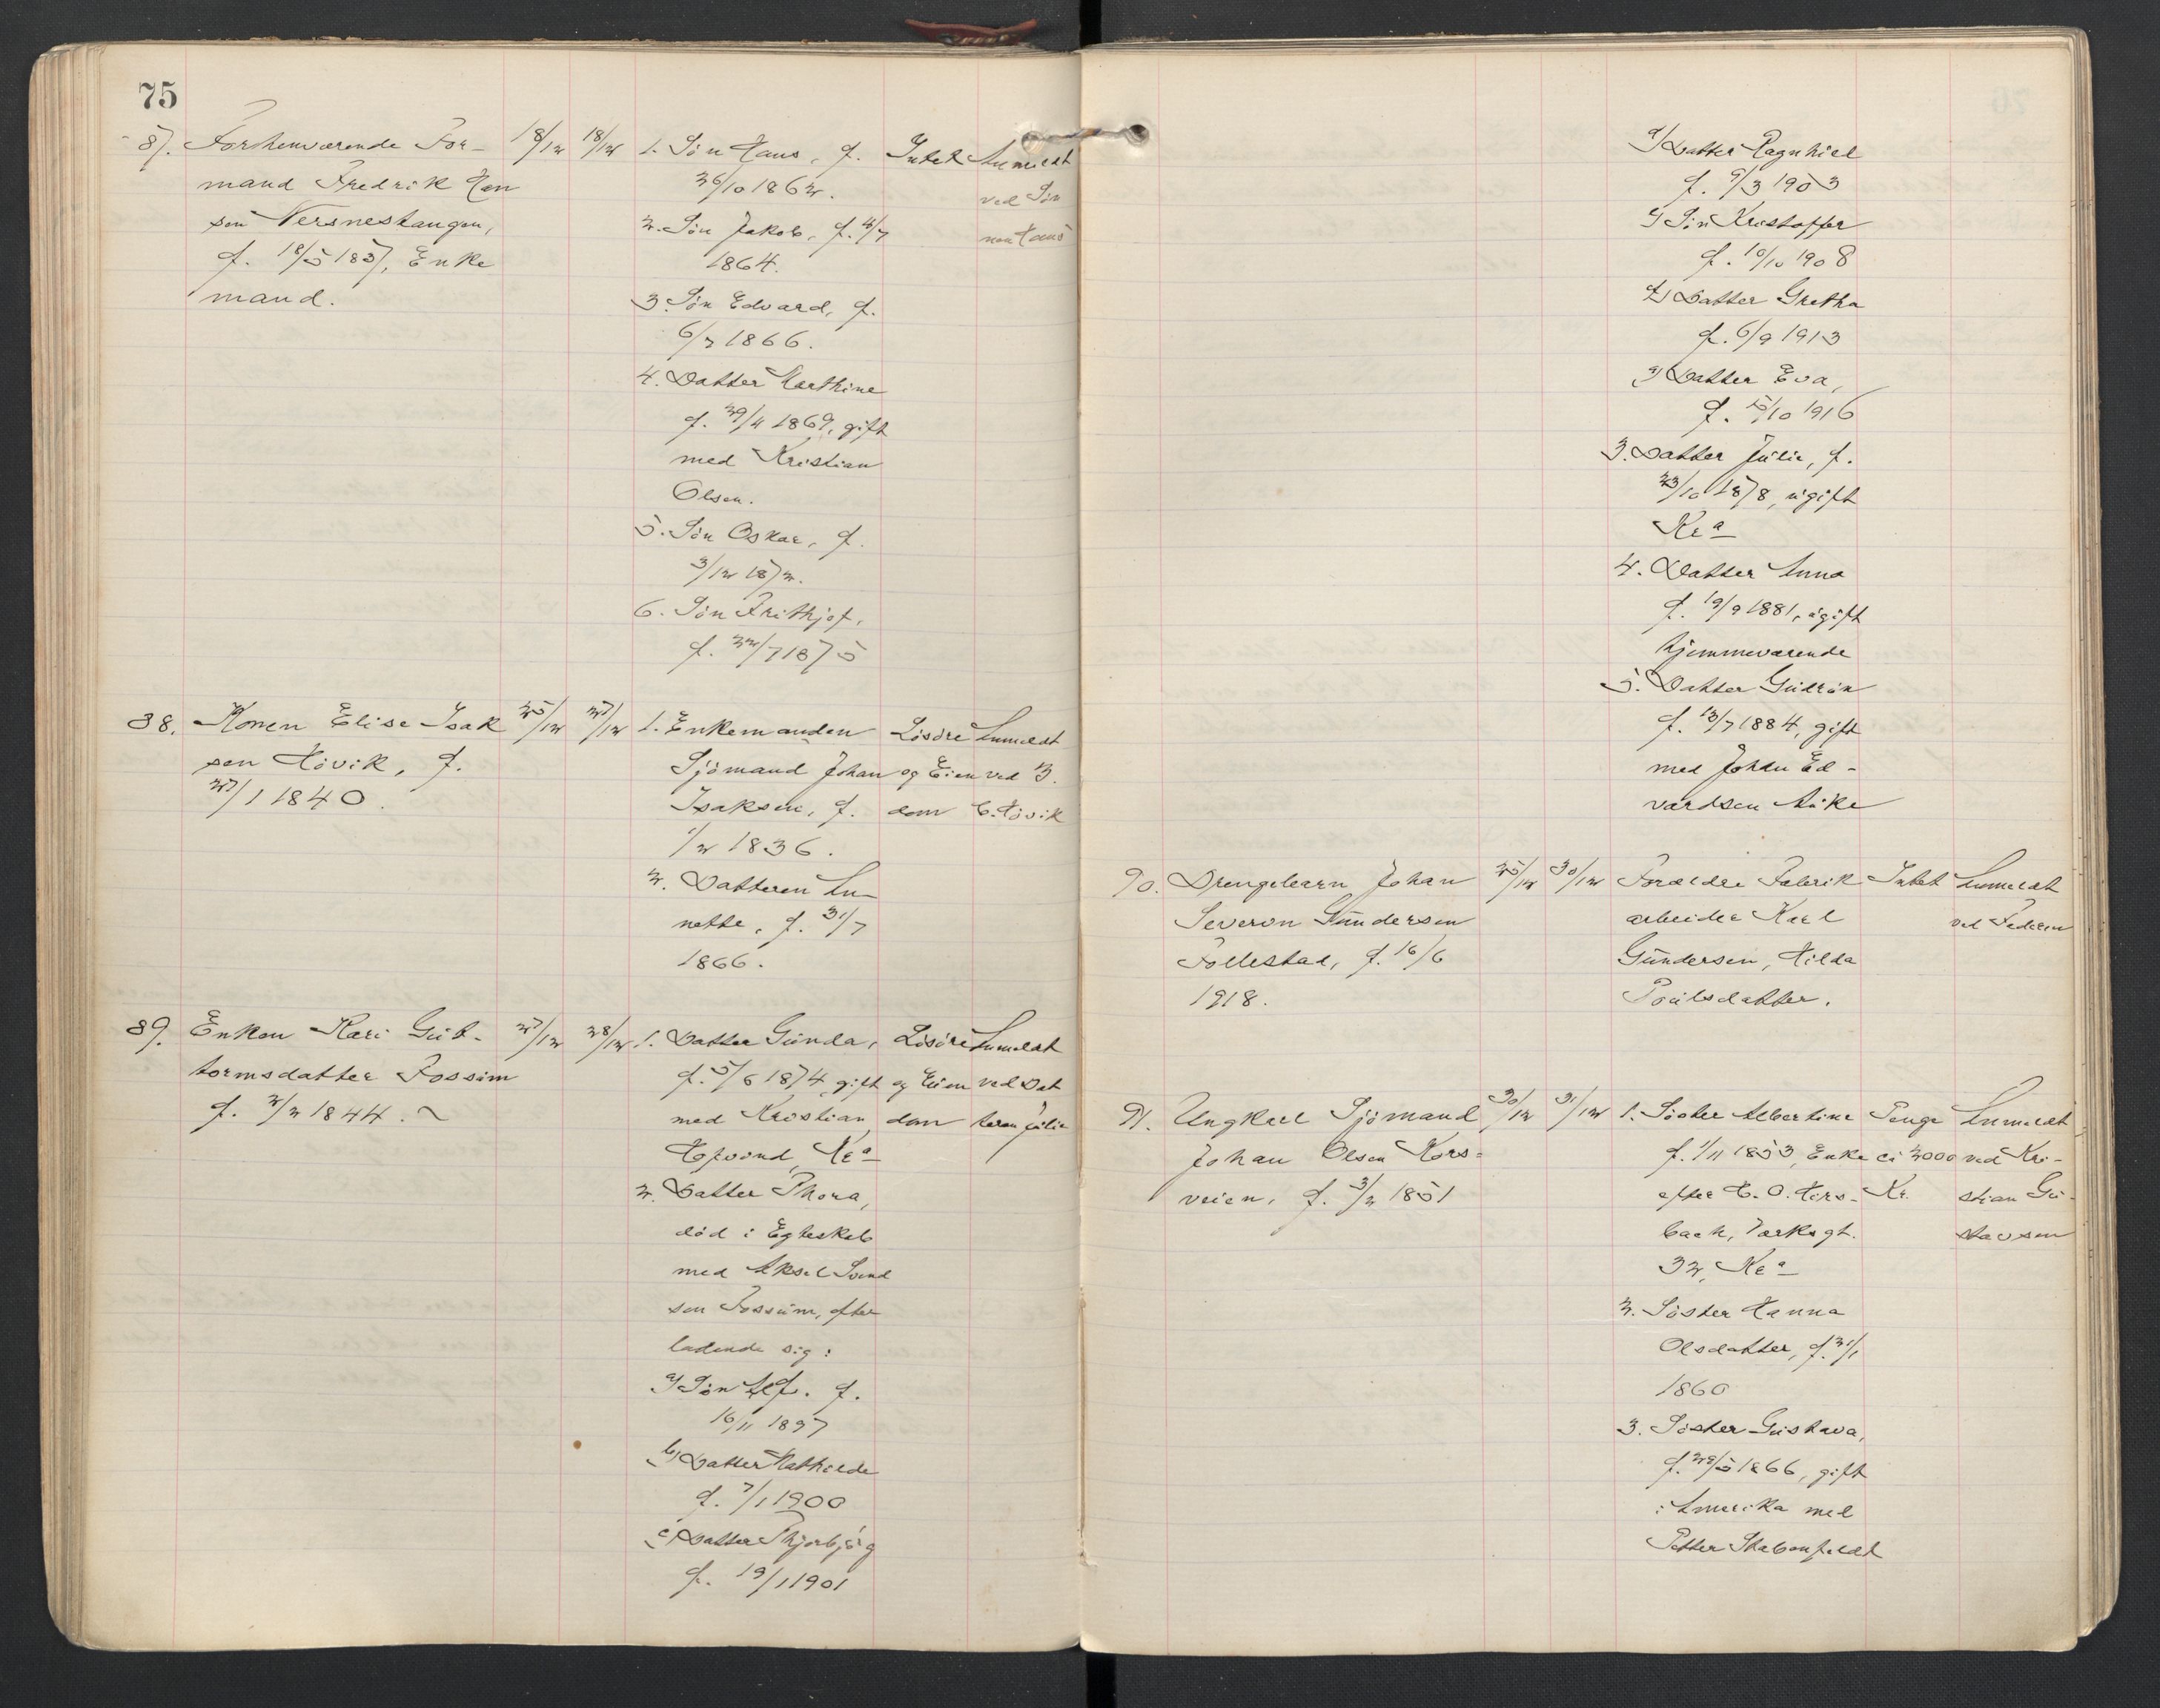 75
87. Forhenværende For-
mand Fredrik Han
sen Nersnestangen,
f. 18/5 1837, Enke
mand.
18/12 18/12
1. Søn Hans, f.
26/10 1862.
2. Søn Jakob, f. 4/7
1864.
3. Søn Edvard, f.
6/7 1866.
4. Datter Marthine
f. 29/4 1869, gift
med Kristian
Olsen.
5. Søn Oskar, f.
3/12 1872.
6. Søn Frithjof,
f. 22/7 1875
Intet
Anmeldt
ved Søn
nen Hans
88. Konen Elise Isak
sen Høvik, f.
27/1 1840.
25/12 27/12
1. Enkemanden
Sjømand Johan
Isaksen, f.
1/2 1836.
2. Datteren An-
nette, f. 31/7
1866.
Løsøre
og Eien
dom
Anmeldt
ved B.
C. Høvik
89. Enken Kari Gut-
tormsdatter Fossum
f. 2/2 1844.
27/12 28/12
1. Datter Gunda,
f. 5/6 1874, gift
med Kristian
Hofvind, Kra
2. Datter Thora,
død i Egteskab
med Aksel Svend
sen Fossum, efter
ladende sig:
a) Søn Alf. f.
16/11 1897
b) Datter Mathilde
f. 7/1 1900
c) Datter Thjorbjørg
f. 19/1 1901
Løsøre
og Eien
dom
Anmeldt
ved Dat
teren Julie
d) Datter Ragnhild
f. 9/3 1903
e) Søn Kristoffer
f. 10/10 1908
f) Datter Gretha
f. 6/9 1913
g) Datter Eva,
f. 15/10 1916
3. Datter Julie, f.
23/10 1878, ugift
Kra
4. Datter Anna
f. 19/9 1881, ugift
hjemmeværende
5. Datter Gudrun
f. 13/7 1884, gift
med Johan Ed-
vardsen Auke
90. Drengebarn Johan
Severon Gundersen
Follestad, f. 16/6
1918.
25/12 30/12
Forældre Fabrik
arbeider Karl
Gundersen, Hilda
Poulsdatter.
Intet
Anmeldt
ved Faderen
91. Ungkarl Sjømand
Johan Olsen Kors-
veien, f. 3/2 1851
30/12 31/12
1. Søster Albertine
f. 1/11 1853, Enke
efter C. O. Hers-
bach, Parksgt.
32, Kra
2. Søster Hanna
Olsdatter, f. 31/1
1860
3. Søster Gustava,
f. 28/5 1866, gift
i Amerika med
Petter Stabenfeldt
Penge
ca 2000
Kr.
Anmeldt
ved Kri-
stian Gu-
stavsen